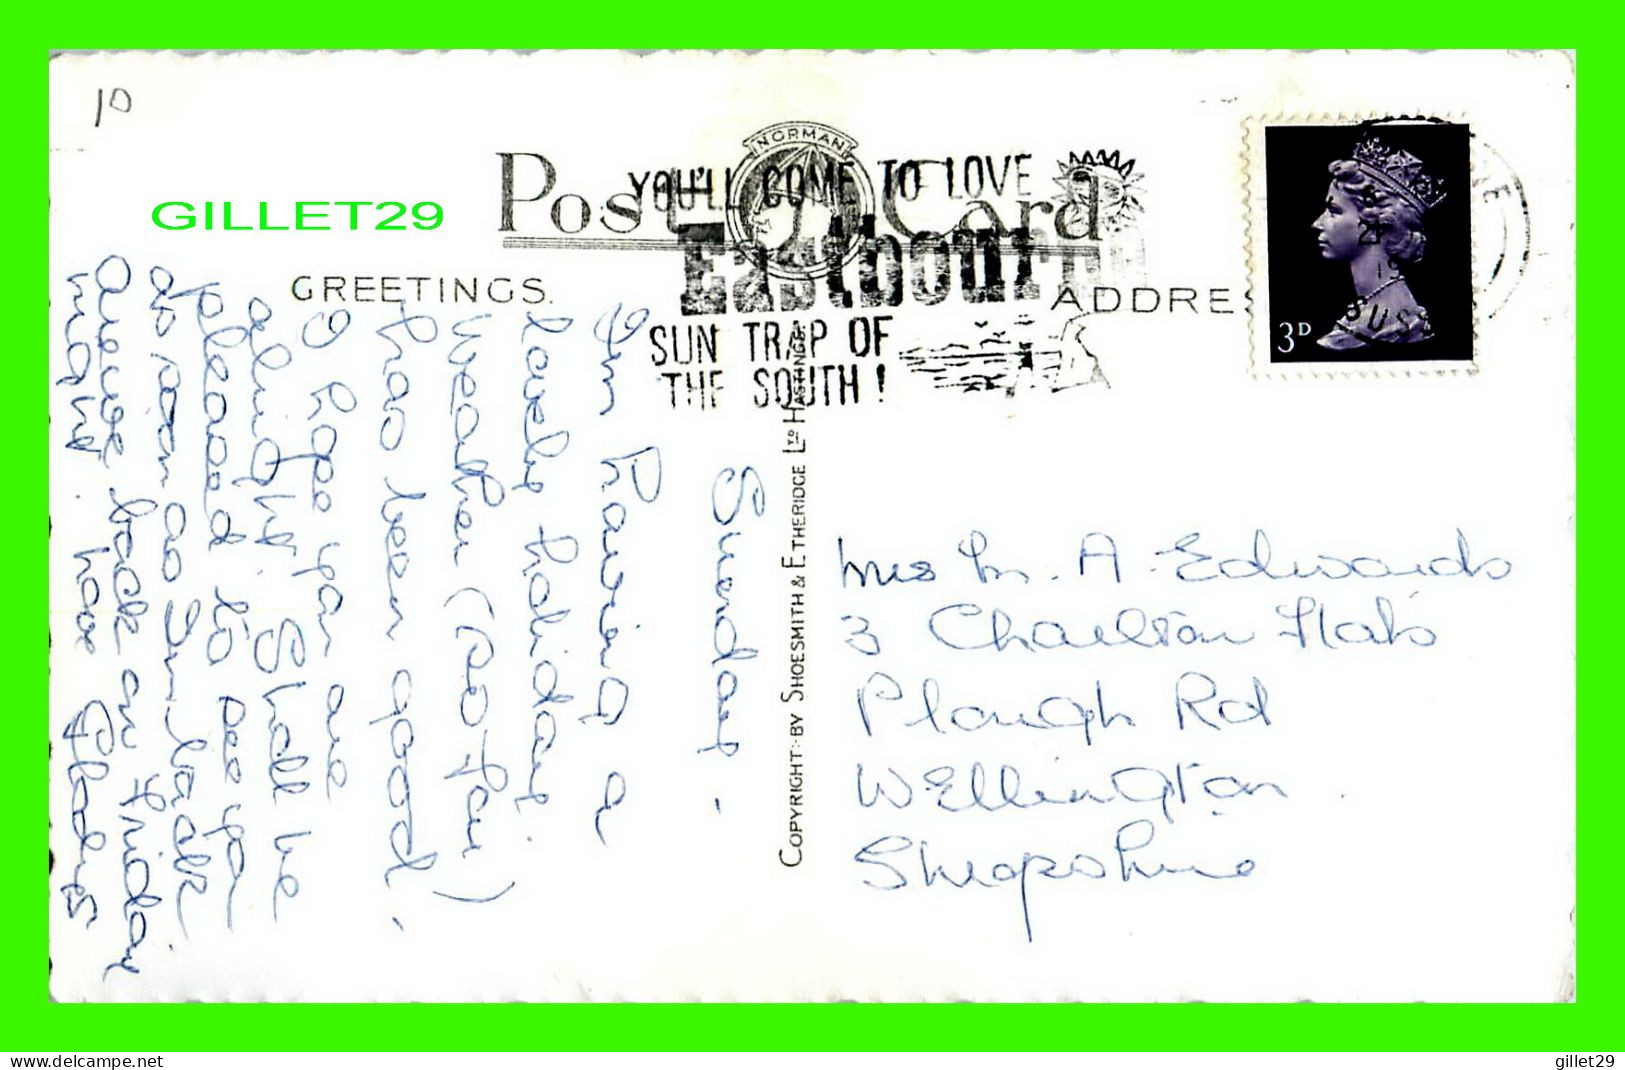 10
NORMAN
Post Card
GILLET29
YOU'LL COME TO LOVE
Eastbourn
SUN TRAP OF
THE SOUTH !
GREETINGS.
ADDRE
3D
SUS
Sunday.
I'm having a
lovely holiday.
Weather (so far)
has been good.
I hope you are
alright. Shall be
pleased to see you
as soon as I'm back
back on Friday
night. love Gladys
COPYRIGHT:- BY SHOESMITH & ETHERIDGE LTD HASTINGS
Mrs M. A. Edwards
3 Charlton Flats
Plough Rd
Wellington
Shropshire
www.delcampe.net
gillet29